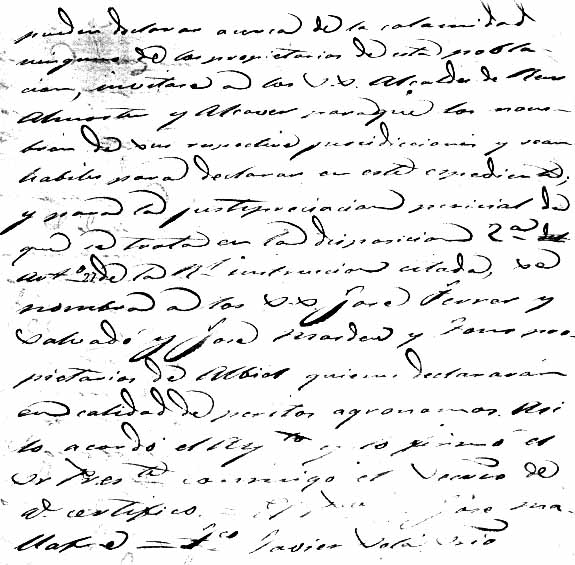 pueden declarar acerca de la calamidad
ninguno de los propietarios de esta pobla-
cion, invitese a los S.S. Alcaldes de Reus
Almoster y Alcover para que los nom-
bren de sus respectivas jurisdicciones y sean
habiles para declarar en este espediente;
y para la justipreciacion pericial de
que se trata en la disposicion 2ª del
artº 22 de la Rl instruccion citada, se
nombra a los S.S. José Ferrer y
Salvadó y José y pro-
pietarios de Albiol quienes declararán
en calidad de peritos agronomos. Asi
lo acordó el Ayto y lo firmó el
Sr Preste conmigo el Secrio de
q. certifico. = José Ma-
= Fco Javier Solá Srio